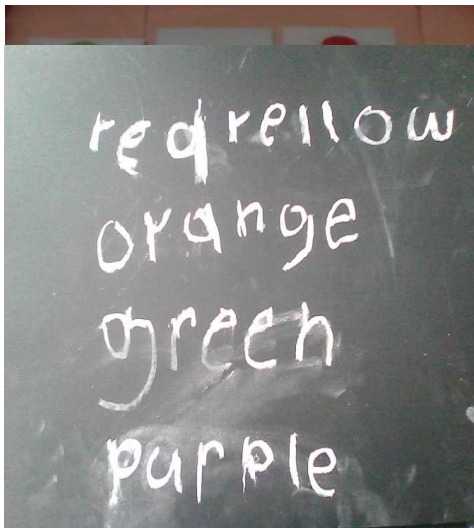 red rellow
orange
green
purple